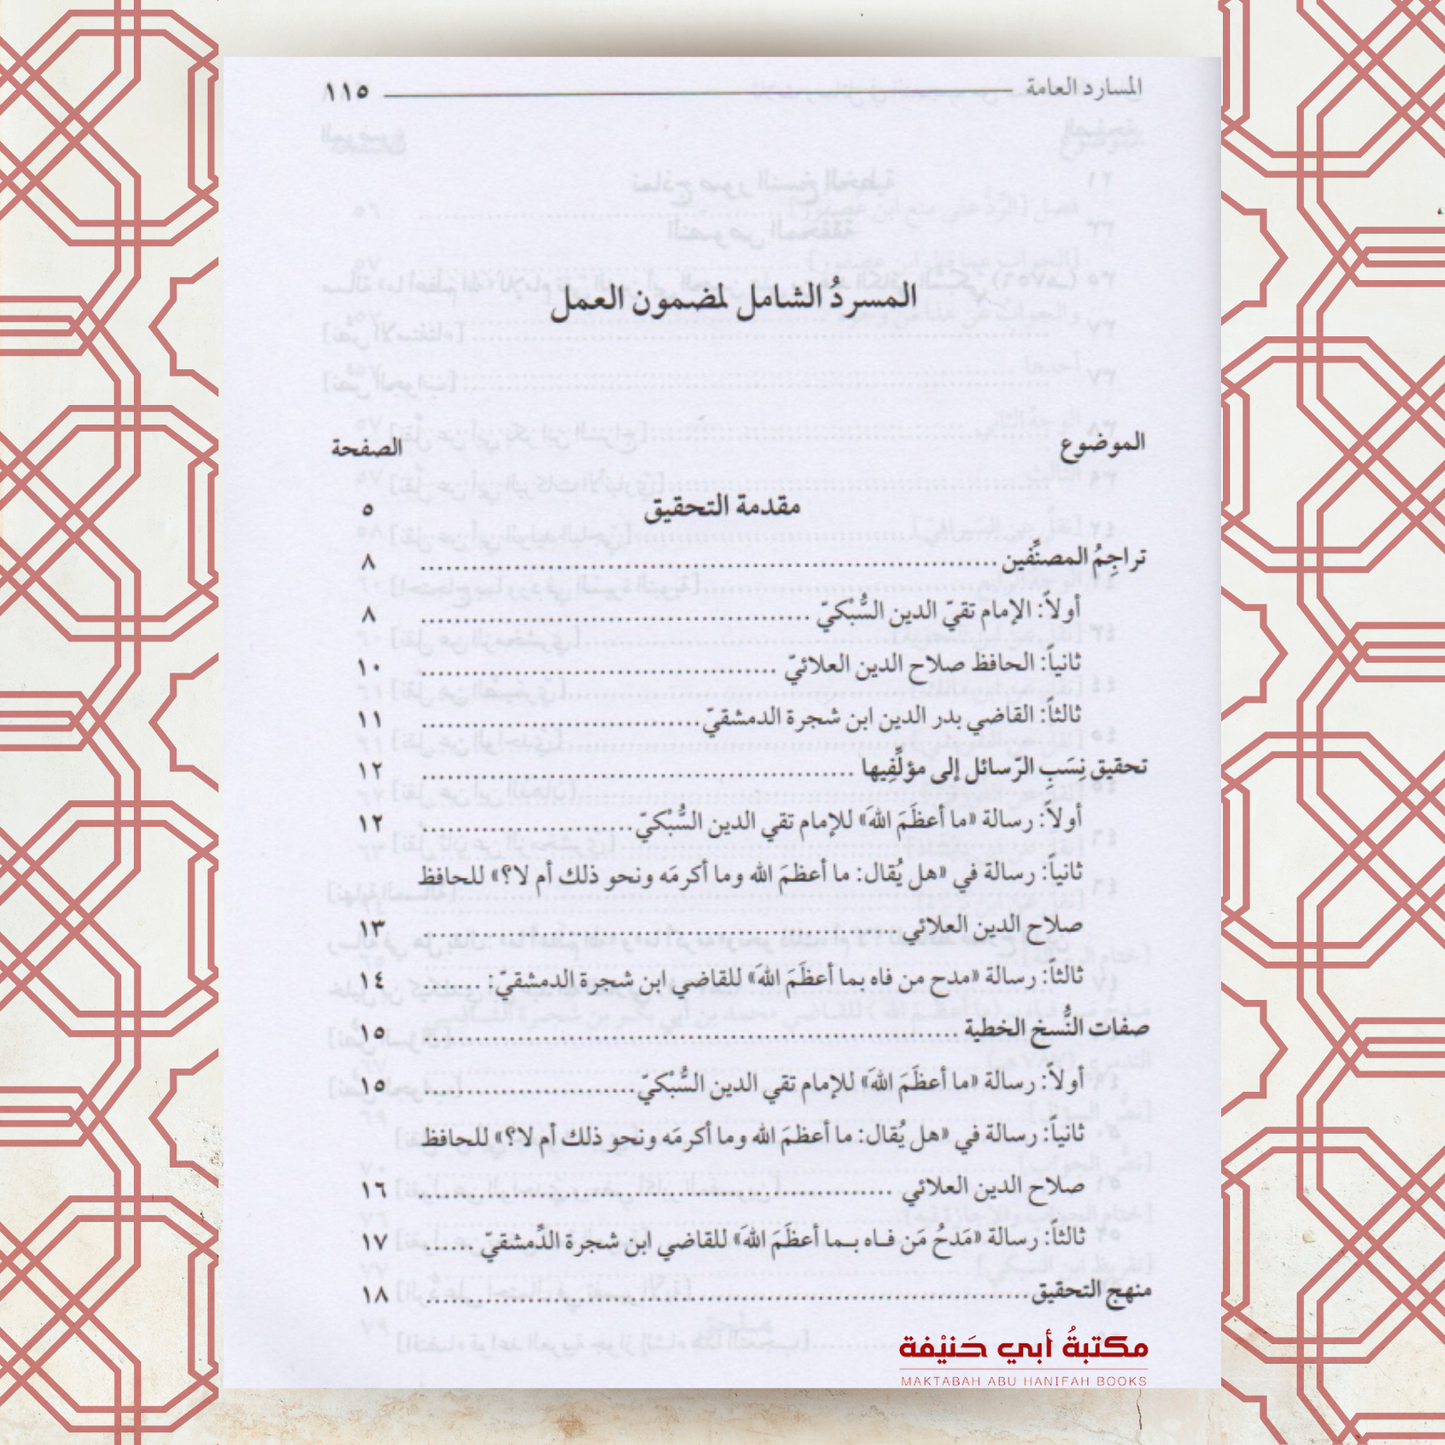 المسارد العامة ١١٥
المسردُ الشامل لمضمون العمل
الموضوع الصفحة
مقدمة التحقيق ٥
تراجِمُ المصنِّفين ٨
أولاً: الإمام تقيّ الدين السُّبْكيّ ٨
ثانياً: الحافظ صلاح الدين العلائيّ ١٠
ثالثاً: القاضي بدر الدين ابن شجرة الدمشقيّ ١١
تحقيق نِسَبِ الرّسائل إلى مؤلِّفِيها ١٢
أولاً: رسالة «ما أعظَمَ اللهَ» للإمام تقي الدين السُّبْكيّ ١٢
ثانياً: رسالة في «هل يُقال: ما أعظمَ الله وما أكرمَه ونحو ذلك أم لا؟» للحافظ
صلاح الدين العلائي ١٣
ثالثاً: رسالة «مدح من فاه بما أعظَمَ اللهَ» للقاضي ابن شجرة الدمشقيّ: ١٤
صفات النُّسخ الخطية ١٥
أولاً: رسالة «ما أعظَمَ اللهَ» للإمام تقي الدين السُّبْكيّ ١٥
ثانياً: رسالة في «هل يُقال: ما أعظمَ الله وما أكرمَه ونحو ذلك أم لا؟» للحافظ
صلاح الدين العلائي ١٦
ثالثاً: رسالة «مَدحُ مَن فـاه بـما أعظَمَ اللهَ» للقاضي ابن شجرة الدِّمشقيّ ١٧
منهج التحقيق ١٨
مكتبةُ أبي حَنيْفة
MAKTABAH ABU HANIFAH BOOKS